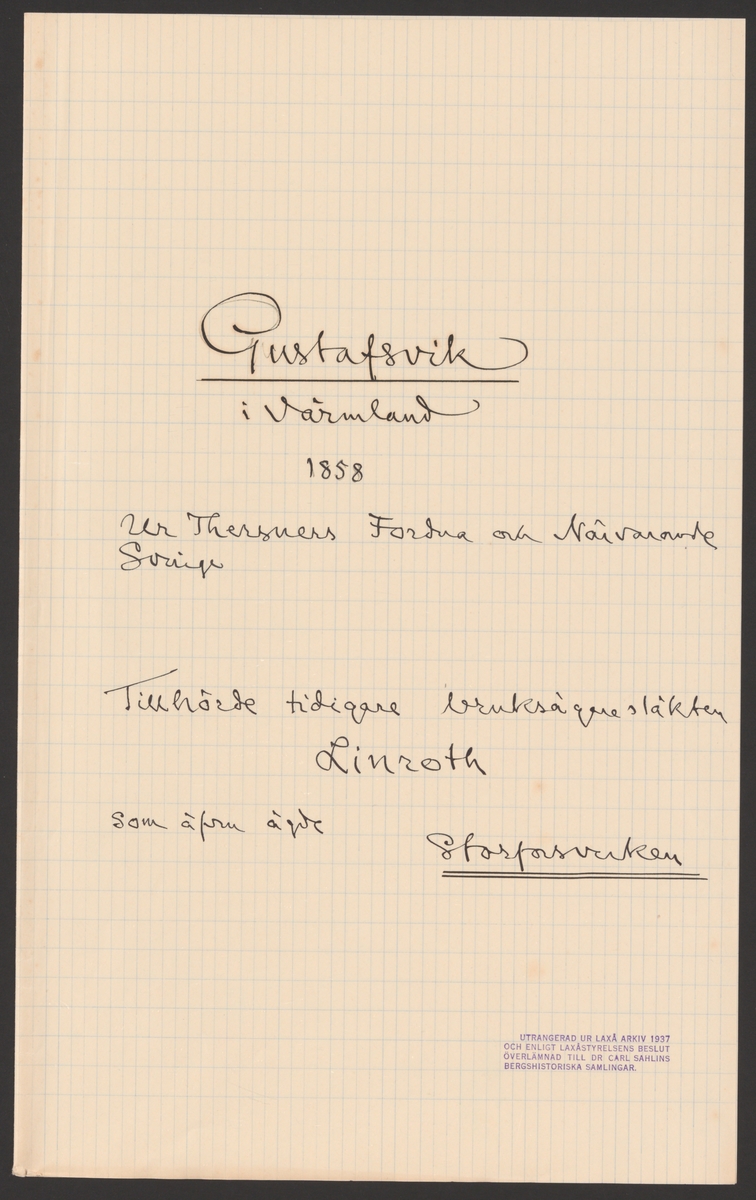 Gustafsvik
i Värmland
1858
Ur Thersners Fordna och Närvarande
Sverige
Tillhörde tidigare bruksägaresläkten
Linroth
som äfven ägde
Storforsverken
UTRANGERAD UR LAXÅ ARKIV 1937
OCH ENLIGT LAXÅSTYRELSENS BESLUT
ÖVERLÄMNAD TILL DR CARL SAHLINS
BERGSHISTORISKA SAMLINGAR.